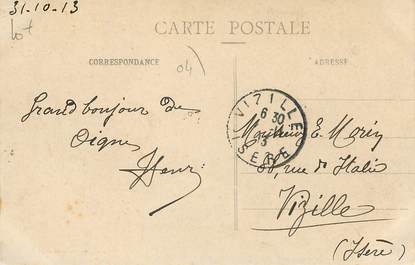 31-10-13
lot
CARTE POSTALE
CORRESPONDANCE
04)
ADRESSE
Grand bonjour de
Digne
Henri
VIZILLE
6 30
ISERE
Monsieur E. Morin
rue de Italie
Vizille
(Isère)